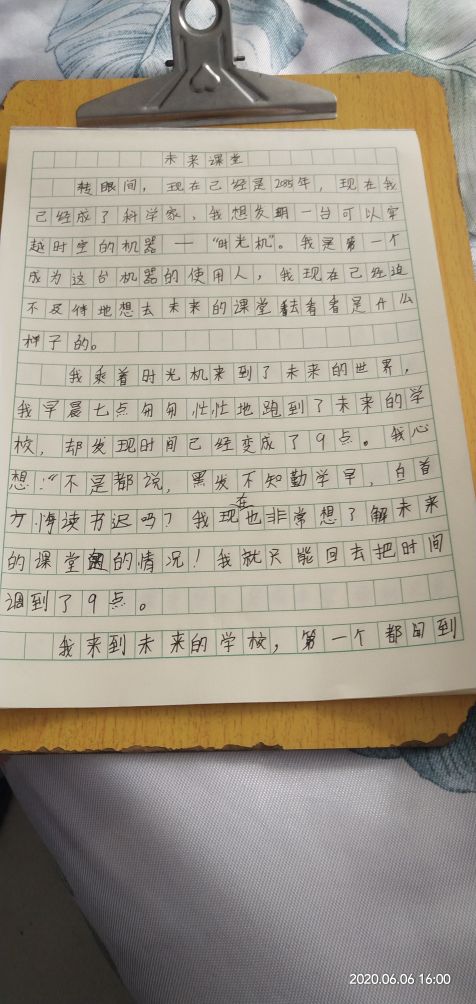 未来课堂
转眼间，现在已经是2085年，现在我
已经成了科学家，我想发明一台可以穿
越时空的机器——“时光机”。我是第一个
成为这台机器的使用人，我现在已经迫
不及待地想去未来的课堂去看看是什么
样子的。
我乘着时光机来到了未来的世界，
我早晨七点匆匆忙忙地跑到了未来的学
校，却发现时间已经变成了9点。我心
想：“不是都说，黑发不知勤学早，白首
方悔读书迟吗？我现在也非常想了解未来
的课堂的情况！我就只能回去把时间
调到了9点。
我来到未来的学校，第一个都
2020.06.06 16:00